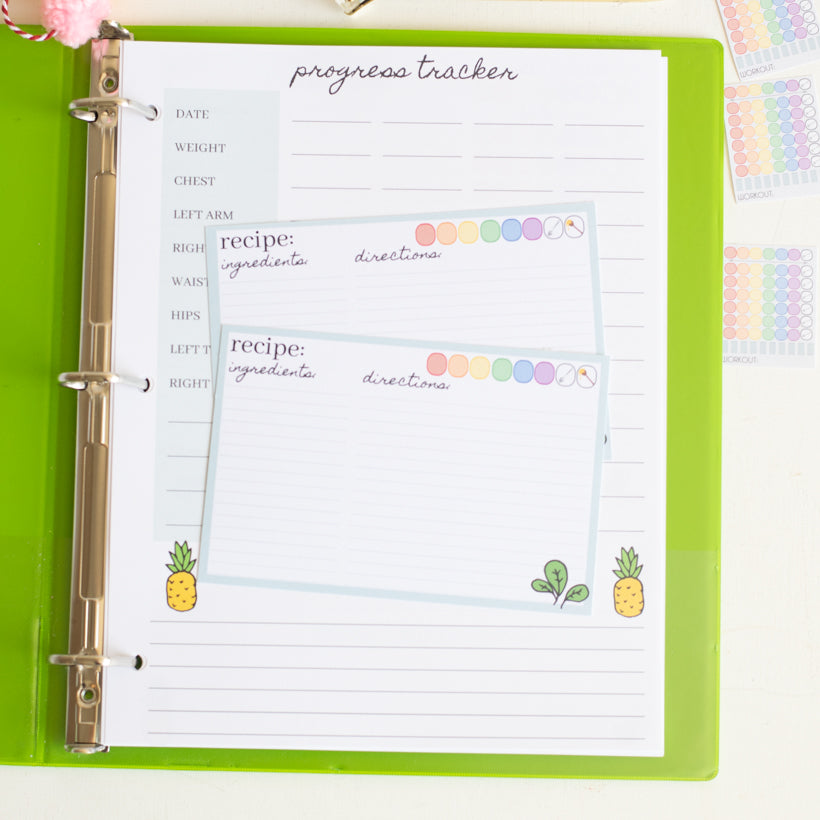 progress tracker
DATE
WEIGHT
CHEST
LEFT ARM
RIGH
WAIST
HIPS
LEFT T
RIGHT
recipe:
ingredients:
directions:
recipe:
ingredients:
directions:
WORKOUT:
WORKOUT:
WORKOUT: